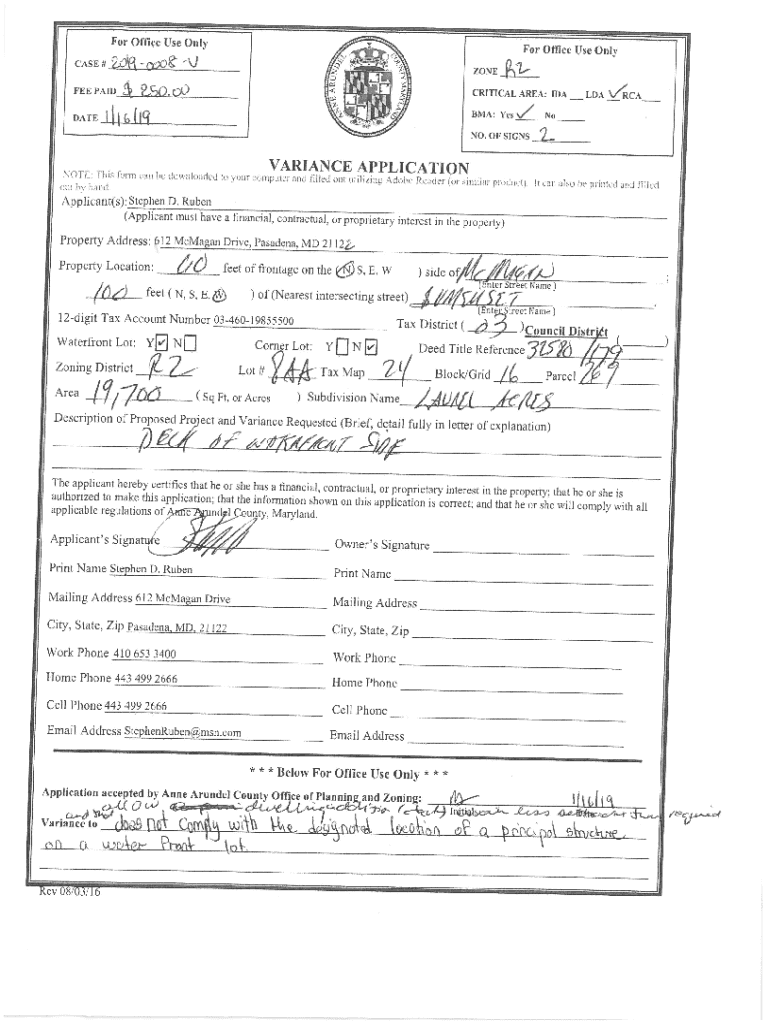 For Office Use Only
CASE # 2019-0008-V
FEE PAID $ 250.00
DATE 1/16/19
ANNE ARUNDEL COUNTY MARYLAND
For Office Use Only
ZONE R2
CRITICAL AREA: IDA ___ LDA ✓ RCA ___
BMA: Yes ✓ No ____
NO. OF SIGNS 2
VARIANCE APPLICATION
NOTE: This form can be downloaded to your computer and filled out utilizing Adobe Reader (or similar product). It can also be printed and filled
out by hand.
Applicant(s): Stephen D. Ruben
(Applicant must have a financial, contractual, or proprietary interest in the property)
Property Address: 612 McMagan Drive, Pasadena, MD 21122
Property Location: 60 feet of frontage on the (N) S, E. W ) side of McMagan
(Enter Street Name )
100 feet ( N, S, E. (W) ) of (Nearest intersecting street)
(Enter Street Name )
12-digit Tax Account Number 03-460-19855500 Tax District ( 03 ) Council District ( ____ )
Waterfront Lot: Y ☑ N ☐ Corner Lot: Y ☐ N ☑ Deed Title Reference 32580/179
Zoning District R2 Lot # 8AA Tax Map 24 Block/Grid 16 Parcel 269
Area 19,700 ( Sq Ft. or Acres ) Subdivision Name LAUREL ACRES
Description of Proposed Project and Variance Requested (Brief, detail fully in letter of explanation)
DECK
The applicant hereby certifies that he or she has a financial, contractual, or proprietary interest in the property; that he or she is
authorized to make this application; that the information shown on this application is correct; and that he or she will comply with all
applicable regulations of Anne Arundel County, Maryland.
Applicant's Signature
Owner's Signature
Print Name Stephen D. Ruben
Print Name
Mailing Address 612 McMagan Drive
Mailing Address
City, State, Zip Pasadena, MD, 21122
City, State, Zip
Work Phone 410 653 3400
Work Phone
Home Phone 443 499 2666
Home Phone
Cell Phone 443 499 2666
Cell Phone
Email Address StephenRuben@msn.com
Email Address
* * * Below For Office Use Only * * *
Application accepted by Anne Arundel County Office of Planning and Zoning: 1/16/19
allow dwelling addition (deck) with less than required
Variance to and that does not comply with the designated location of a principal structure
on a water front lot.
Rev 08/03/16